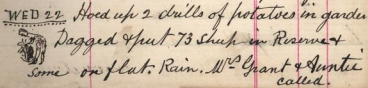 WED 22 Hoed up 2 drills of potatoes in garden
Dagged & put 73 sheep in Reserve &
some on flat. Rain. Mrs Grant & Auntie
called.